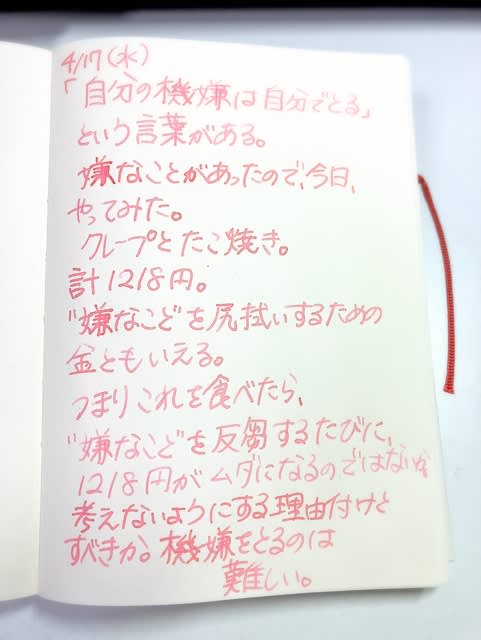 4/17(水)
「自分の機嫌は自分でとる」
という言葉がある。
嫌なことがあったので、今日、
やってみた。
クレープとたこ焼き。
計1218円。
"嫌なこと"を尻拭いするための
金ともいえる。
つまりこれを食べたら、
"嫌なこと"を反芻するたびに、
1218円がムダになるのではないか
考えないようにする理由付けと
すべきか。機嫌をとるのは
難しい。